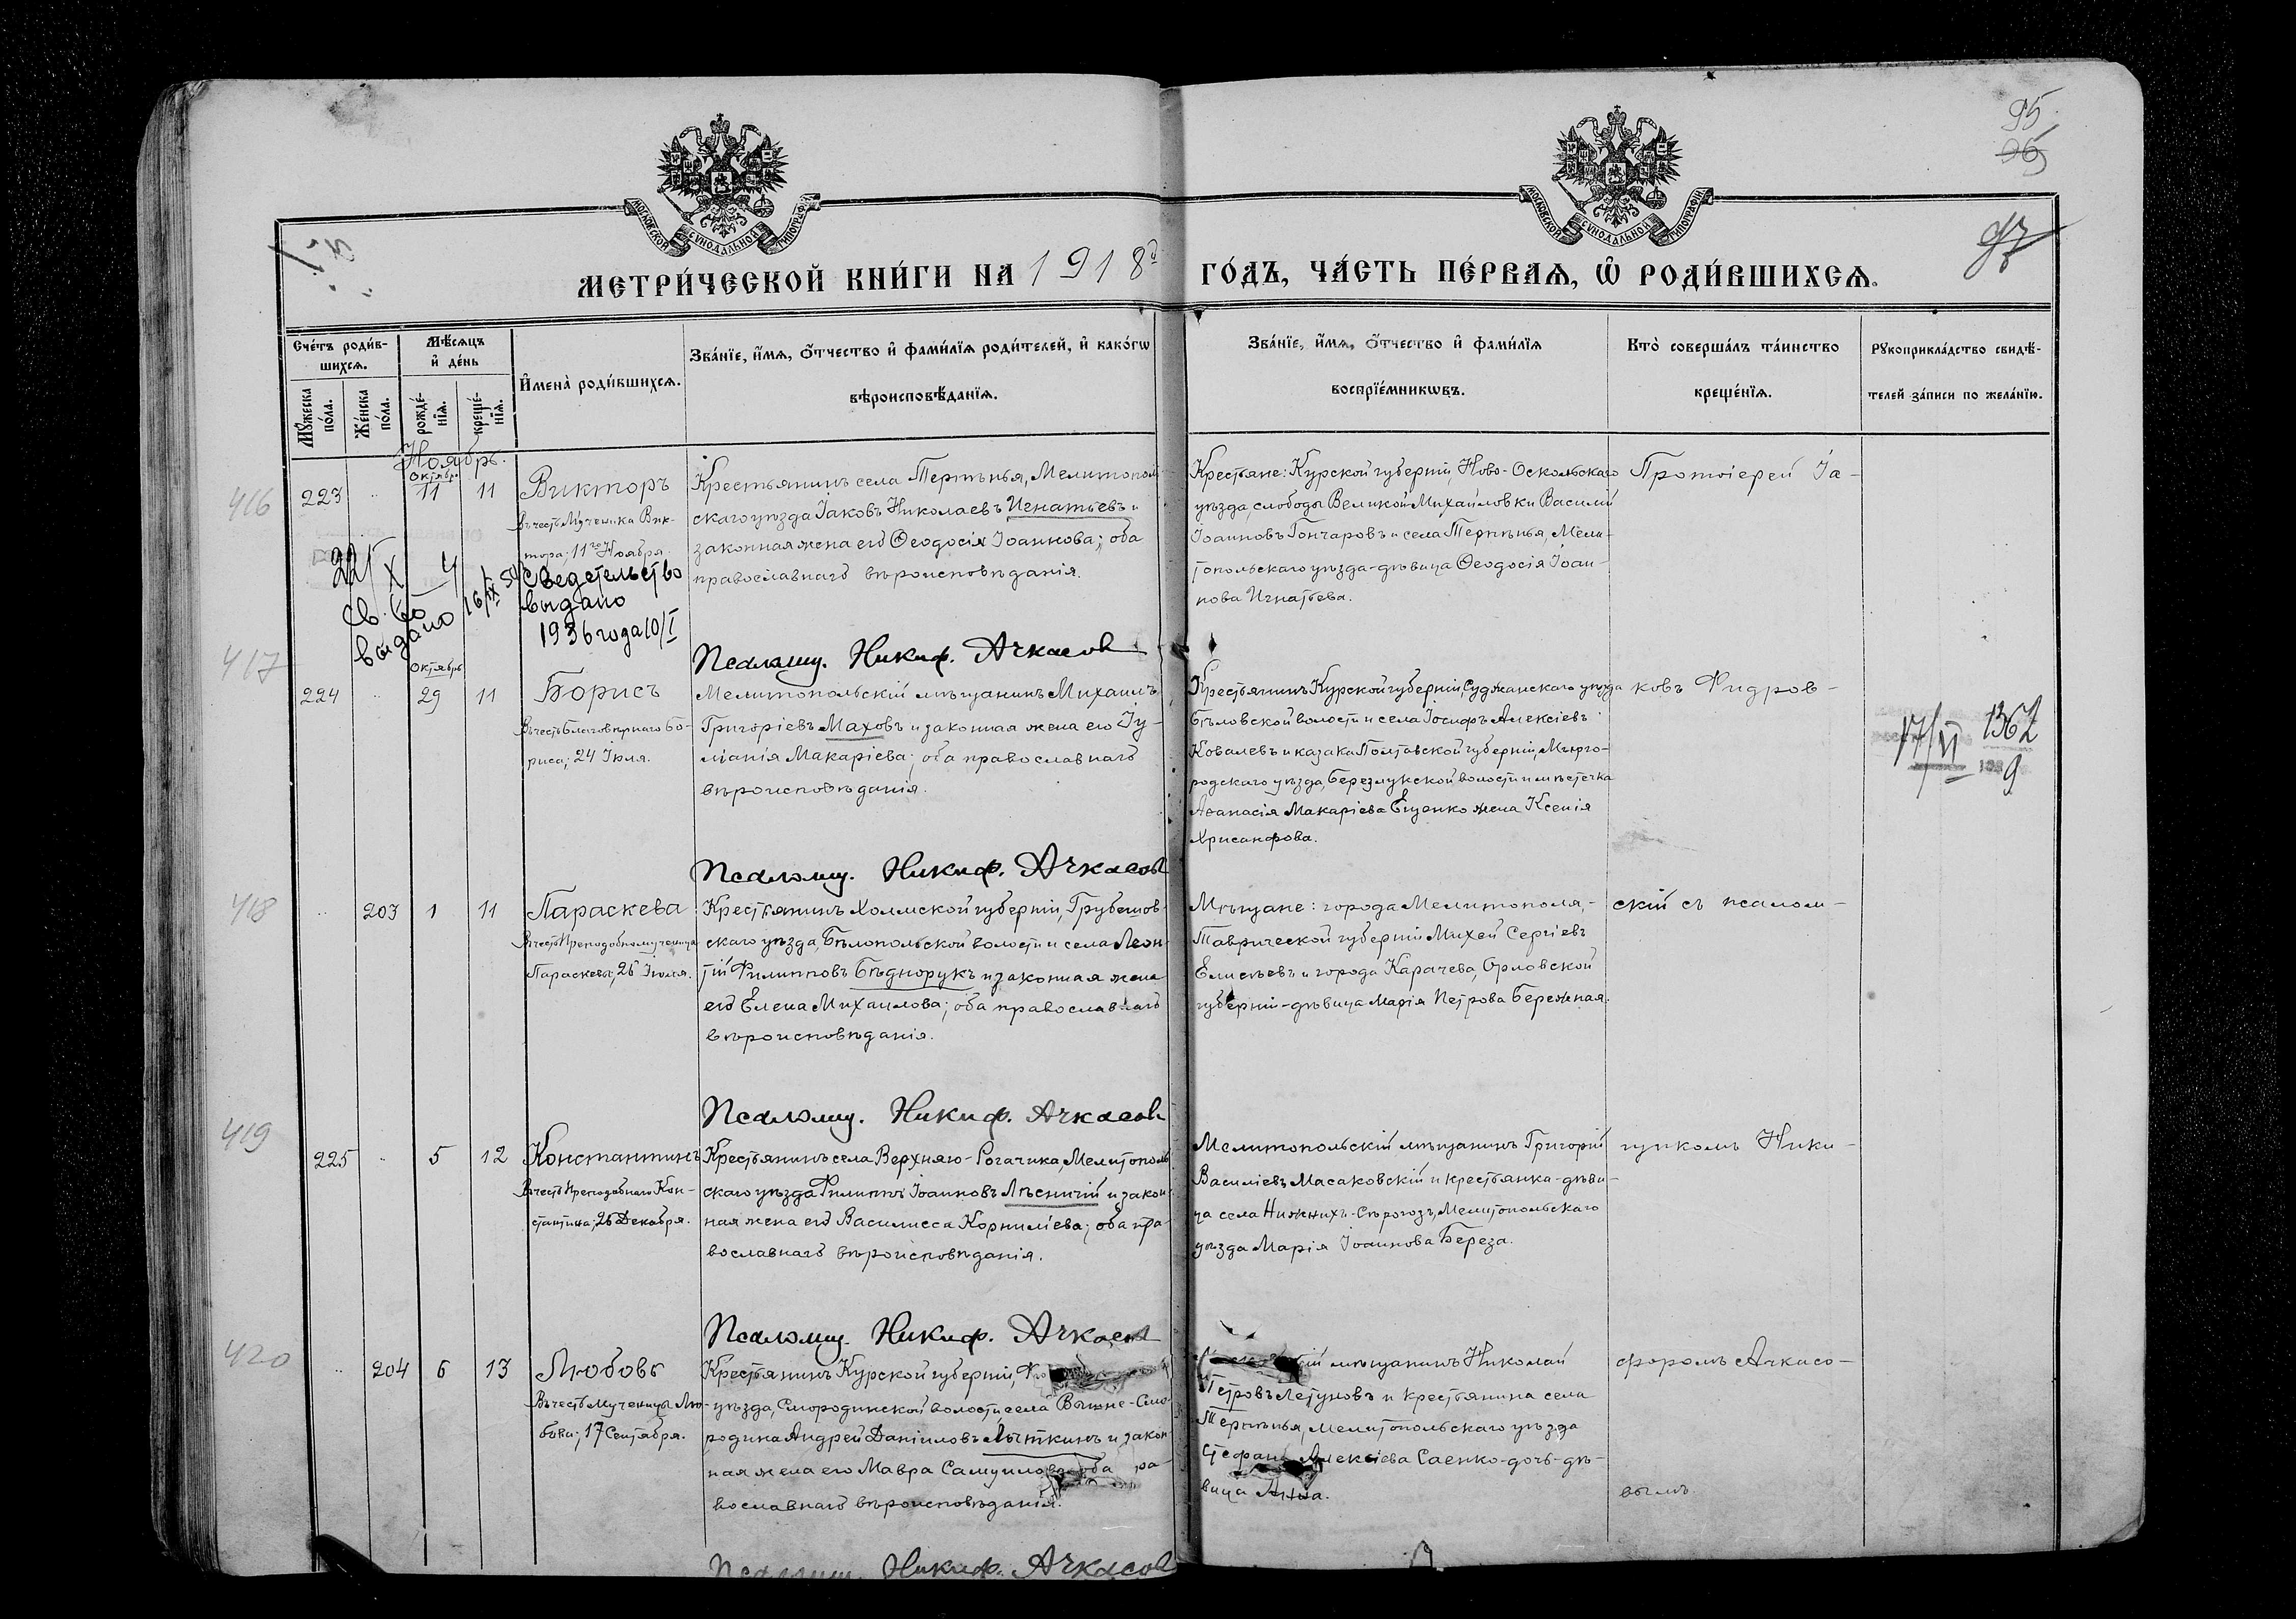 95
96
97
МОСКОВСКОЙ СУНОДАЛЬНОЙ ТИПОГРАФІИ
МОСКОВСКОЙ СУНОДАЛЬНОЙ ТИПОГРАФІИ
МЕТРИ́ЧЕСКОЙ КНИ́ГИ НА 1918 ГО́ДЪ, ЧА́СТЬ ПЕ́РВАѦ, Ѡ҆ РОДИ́ВШИХСѦ.
Сче́тъ роди́в-
шихсѧ.
Мꙋ́жеска по́ла.
Же́нска по́ла.
Мѣ́сѧцъ и҆ де́нь
рожде́-нїѧ.
креще́-нїѧ.
И҆мена̀ роди́вшихсѧ.
Зва́нїе, и҆́мѧ, ѻ҆́тчество и҆ фами́лїѧ роди́телей, и҆ како́гѡ
вѣроисповѣ́данїѧ.
Зва́нїе, и҆́мѧ, ѻ҆́тчество и҆ фами́лїѧ
воспрїе́мникѡвъ.
Кто̀ соверша́лъ та́инство
креще́нїѧ.
Рꙋкоприкла́дство свидѣ́-
телей за́писи по жела́нїю.
Ноябрь.
416
223
Октябрь
11
11
Викторъ
Въ честь Мученика Вик-
тора; 11го Ноября.
Крестьянинъ села Терпѣнья, Мелитополь-
скаго уѣзда Іаковъ Николаевъ Игнатьевъ и
законная жена его Ѳеодосія Іоаннова; оба
православнаго вѣроисповѣданія.
Крестьяне: Курской губерніи, Ново-Оскольскаго
уѣзда, слободы Великой Михайловки Василій
Іоанновъ Гончаровъ и села Терпѣнья, Мели-
топольскаго уѣзда-дѣвица Ѳеодосія Іоан-
нова Игнатьева.
Протоіерей Іа-
Св. во
выдано
16/IX 54
Сведетельство
выдано
1936 года 10/I
Псаломщ. Никиф. Ачкасов
417
224
Октябрь
29
11
Борисъ
Въ честь Благовѣрнаго Бо-
риса; 24 Іюля.
Мелитопольскій мѣщанинъ Михаилъ
Григоріевъ Маховъ и законная жена его Іу-
ліанія Макаріева; оба православнаго
вѣроисповѣданія.
Крестьянинъ Курской губерніи, Суджанскаго уѣзда
Бѣловской волости и села Іосифъ Алексіевъ
Ковалевъ и казака Полтавской губерніи, Мирго-
родскаго уѣзда, Березлукской волости и мѣстечка
Аѳанасія Макаріева Ещенко жена Ксенія
Хрисанфова.
ковъ Фидров-
17/VI 1362
9
Псаломщ. Никиф. Ачкасов
418
203
1
11
Параскева
Въ честь Преподобномученицы
Параскевы, 26 Іюля.
Крестьянинъ Холмской губерніи, Грубешов-
скаго уѣзда, Бѣлопольской волости и села Леон-
тій Филипповъ Бѣднорукъ и законная жена
его Елена Михаилова; оба православнаго
вѣроисповѣданія.
Мѣщане: города Мелитополя,-
Таврической губерніи Михей Сергіевъ
Елисѣевъ и города Карачева, Орловской
губерніи-дѣвица Марія Петрова Бережная.
скій съ псалом-
Псаломщ. Никиф. Ачкасов
419
225
5
12
Константинъ
Въ честь Преподобнаго Кон-
стантина; 26 Декабря.
Крестьянинъ села Верхняго-Рогачика, Мелитополь-
скаго уѣзда Филиппъ Іоанновъ Лѣсничій и закон-
ная жена его Василисса Корниліева; оба пра-
вославнаго вѣроисповѣданія.
Мелитопольскій мѣщанинъ Григорій
Василіевъ Масаковскій и крестьянка-дѣви-
ца села Нижнихъ-Сѣрогозъ, Мелитопольскаго
уѣзда Марія Іоаннова Береза.
щикомъ Ники-
Псаломщ. Никиф. Ачкасов
420
204
6
13
Любовь
Въ честь Мученицы Лю-
бови; 17 Сентября.
Крестьянинъ Курской губерніи,
уѣзда, Смородинской волости села Выше-Смо-
родина Андрей Даніиловъ Лыткинъ и закон-
ная жена его Мавра Самуилова; оба
вославнаго вѣроисповѣданія.
мѣщанинъ Николай
Петровъ Летуновъ и крестьянина села
Терпѣнья, Мелитопольскаго уѣзда
Стефана Алексіева Саенко-дочь-дѣ-
вица Анна.
форомъ Ачкасо-
вымъ.
Псаломщ. Никиф. Ачкасов